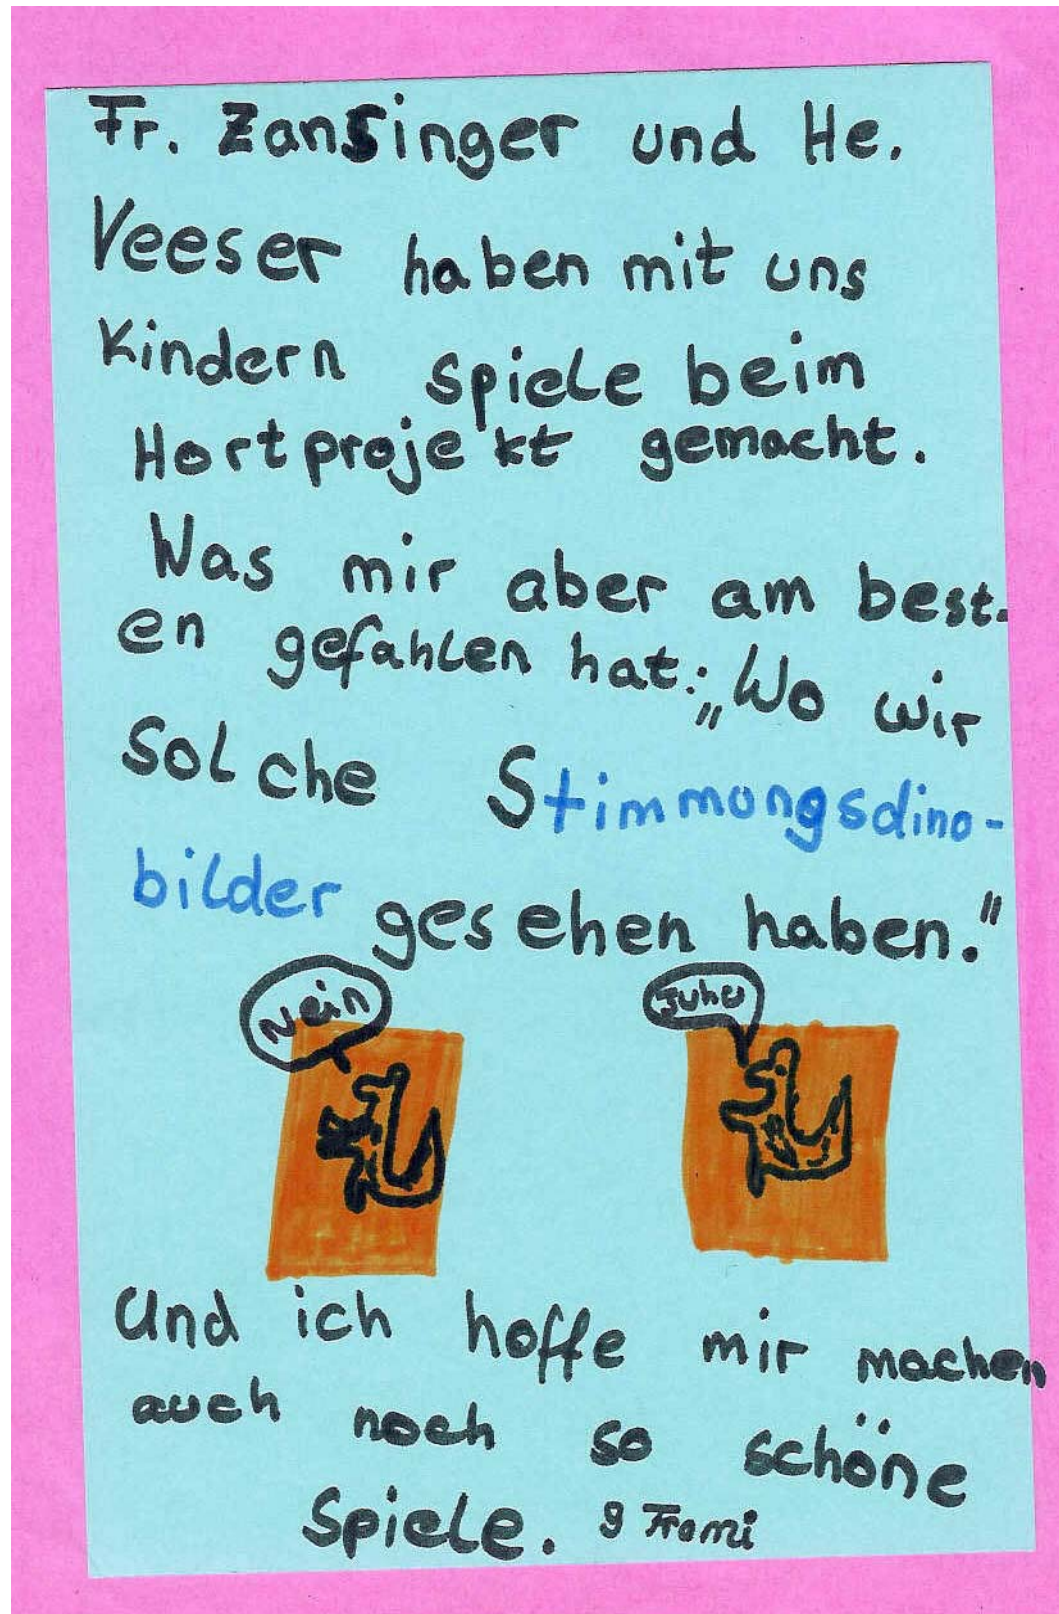 Fr. Zansinger und He.
Veeser haben mit uns
Kindern spiele beim
Hortprojekt gemacht.
Was mir aber am best-
en gefahlen hat: „Wo wir
solche Stimmungsdino-
bilder gesehen haben."
Nein
Juhu
Und ich hoffe mir machen
auch noch so schöne
Spiele.